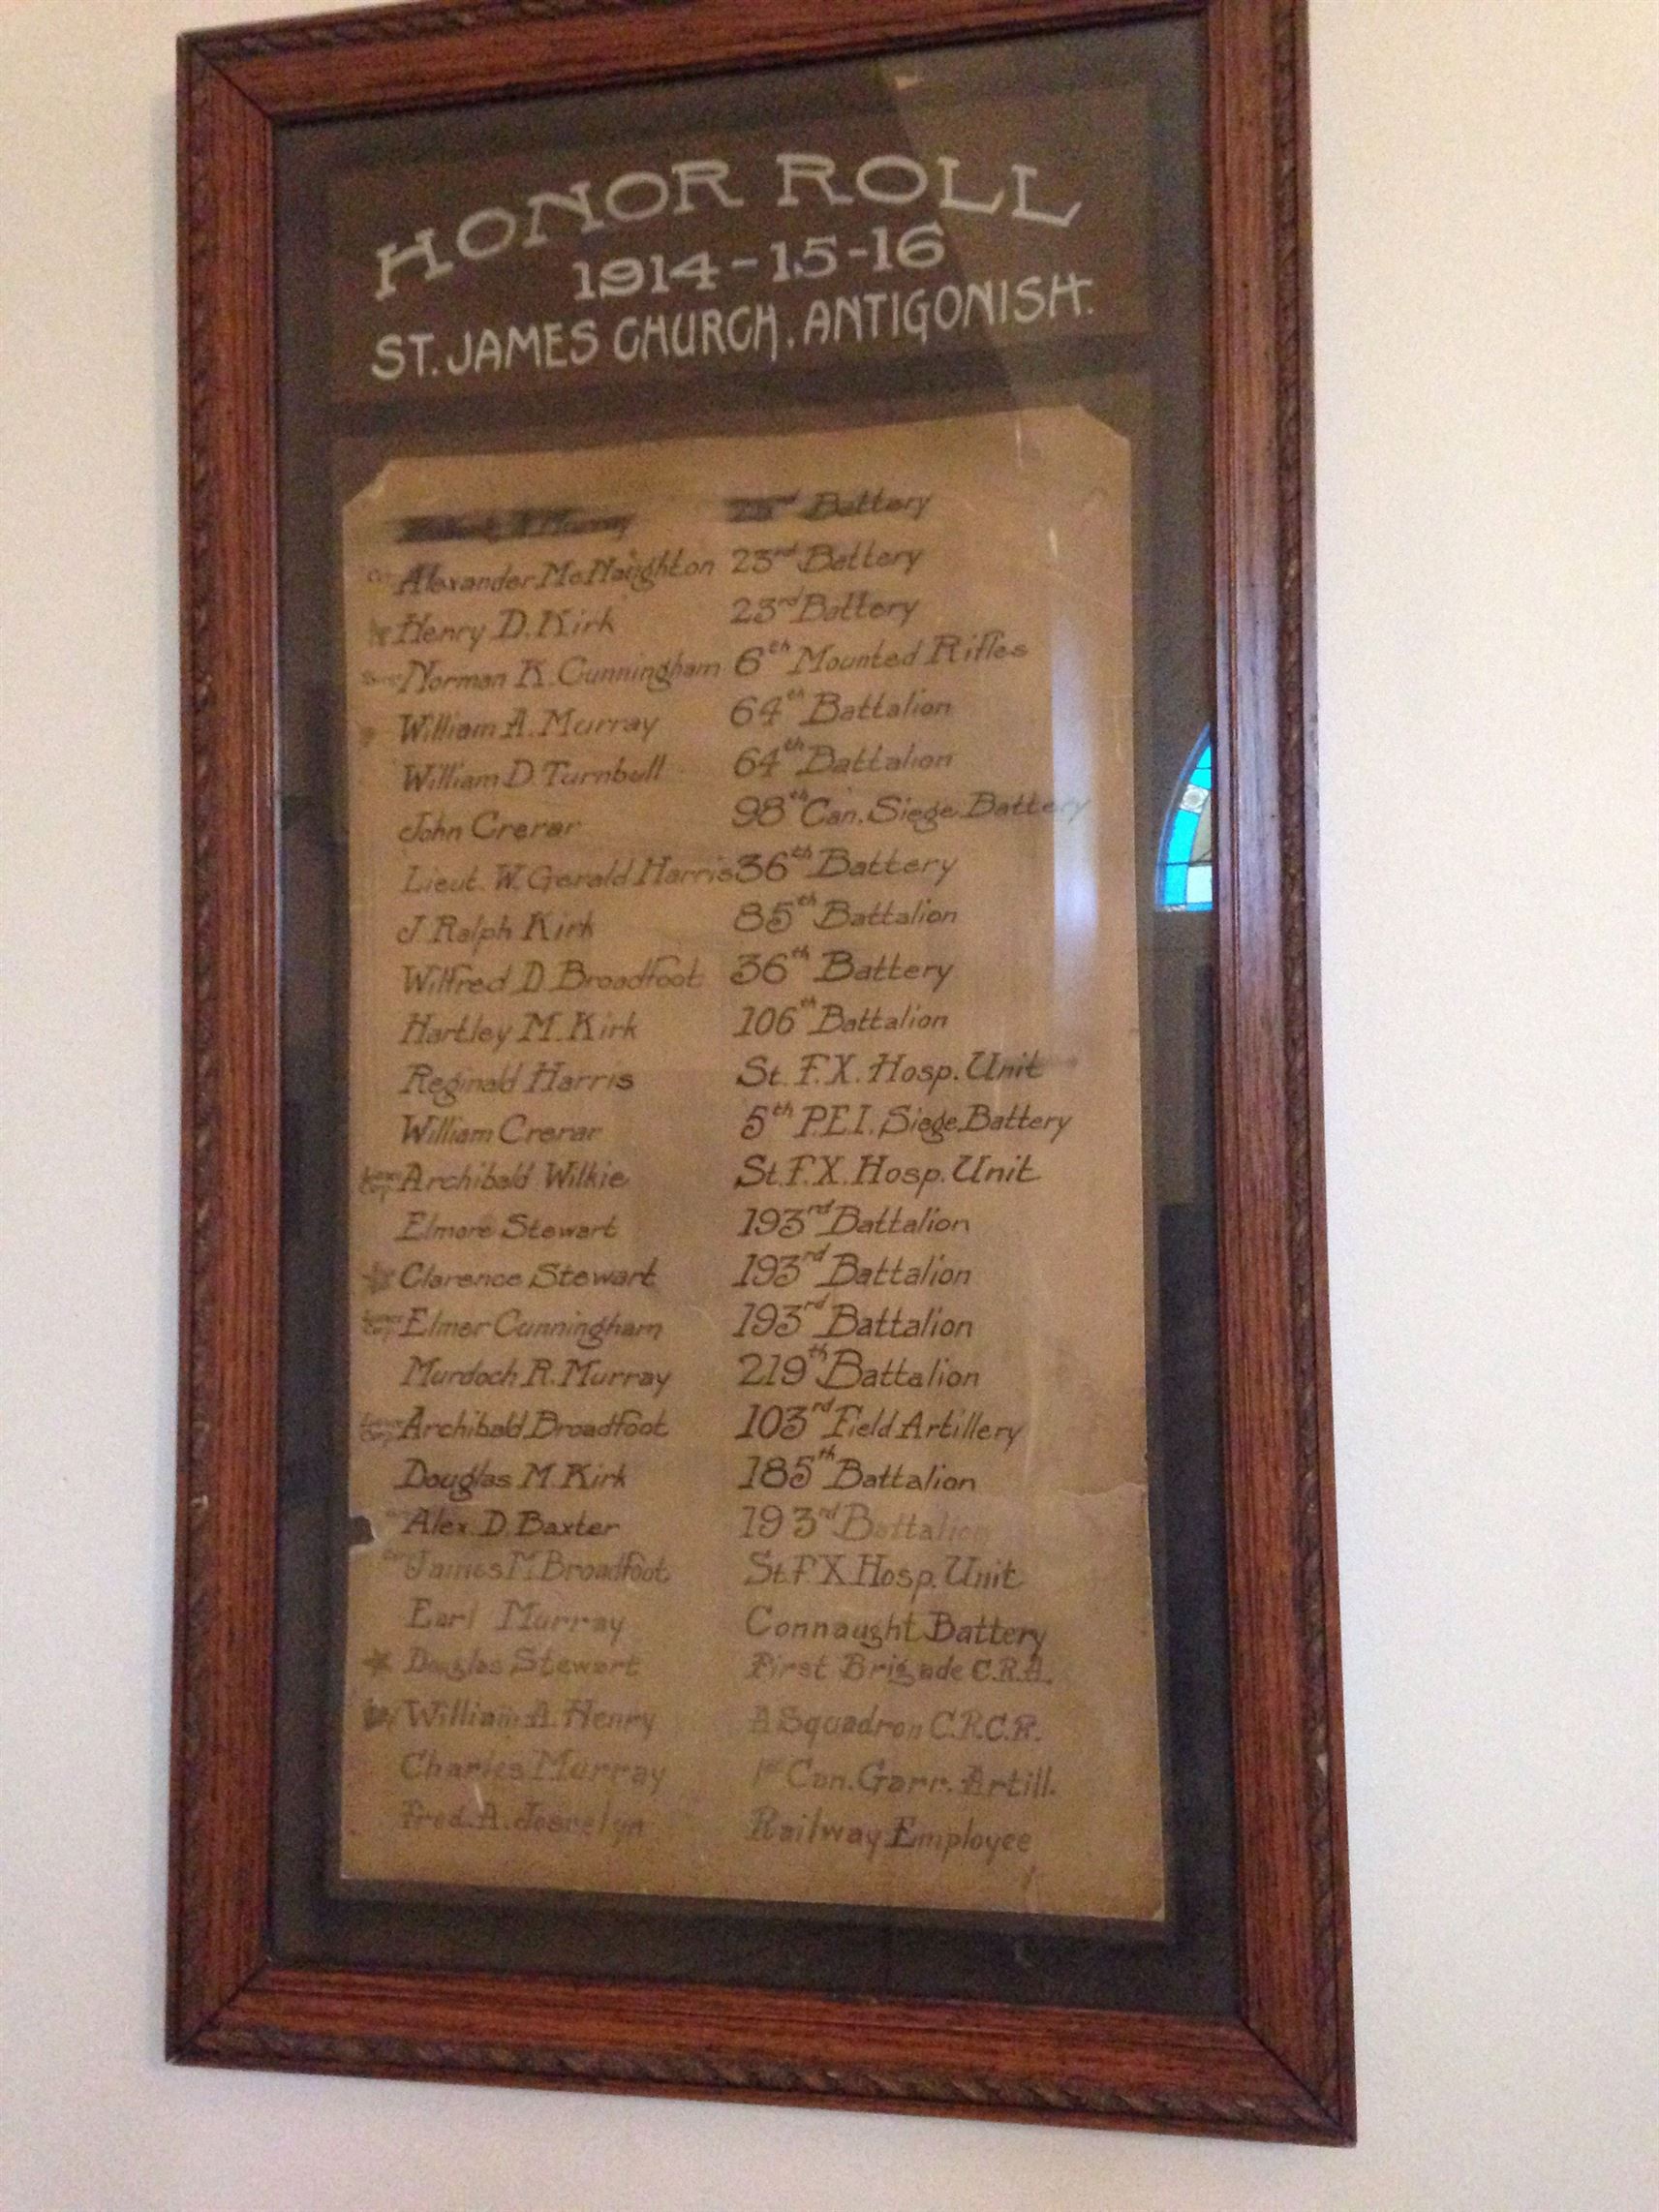 HONOR ROLL
1914-15-16
ST. JAMES CHURCH, ANTIGONISH.
Murray 23rd Battery
Alexander McNaighton 23rd Battery
Henry D. Kirk 23rd Battery
Norman K. Cunningham 6th Mounted Rifles
William A. Murray 64th Battalion
William D. Turnbull 64th Battalion
John Crerar 98th Can. Siege Battery
Lieut. W. Gerald Harris 36th Battery
J. Ralph Kirk 85th Battalion
Wilfred D. Broadfoot 36th Battery
Hartley M. Kirk 106th Battalion
Reginald Harris St. F.X. Hosp. Unit
William Crerar 5th P.E.I. Siege Battery
Lance Corp. Archibald Wilkie St. F.X. Hosp. Unit
Elmore Stewart 193rd Battalion
Clarence Stewart 193rd Battalion
Lance Corp. Elmer Cunningham 193rd Battalion
Murdoch R. Murray 219th Battalion
Lance Corp. Archibald Broadfoot 103rd Field Artillery
Douglas M. Kirk 185th Battalion
Alex. D. Baxter 193rd Battalion
James M. Broadfoot St. F.X. Hosp. Unit
Earl Murray Connaught Battery
Douglas Stewart First Brigade C.R.A.
William A. Henry A Squadron C.R.C.R.
Charles Murray 1st Can. Garr. Artill.
Fred. A. Joscelyn Railway Employee